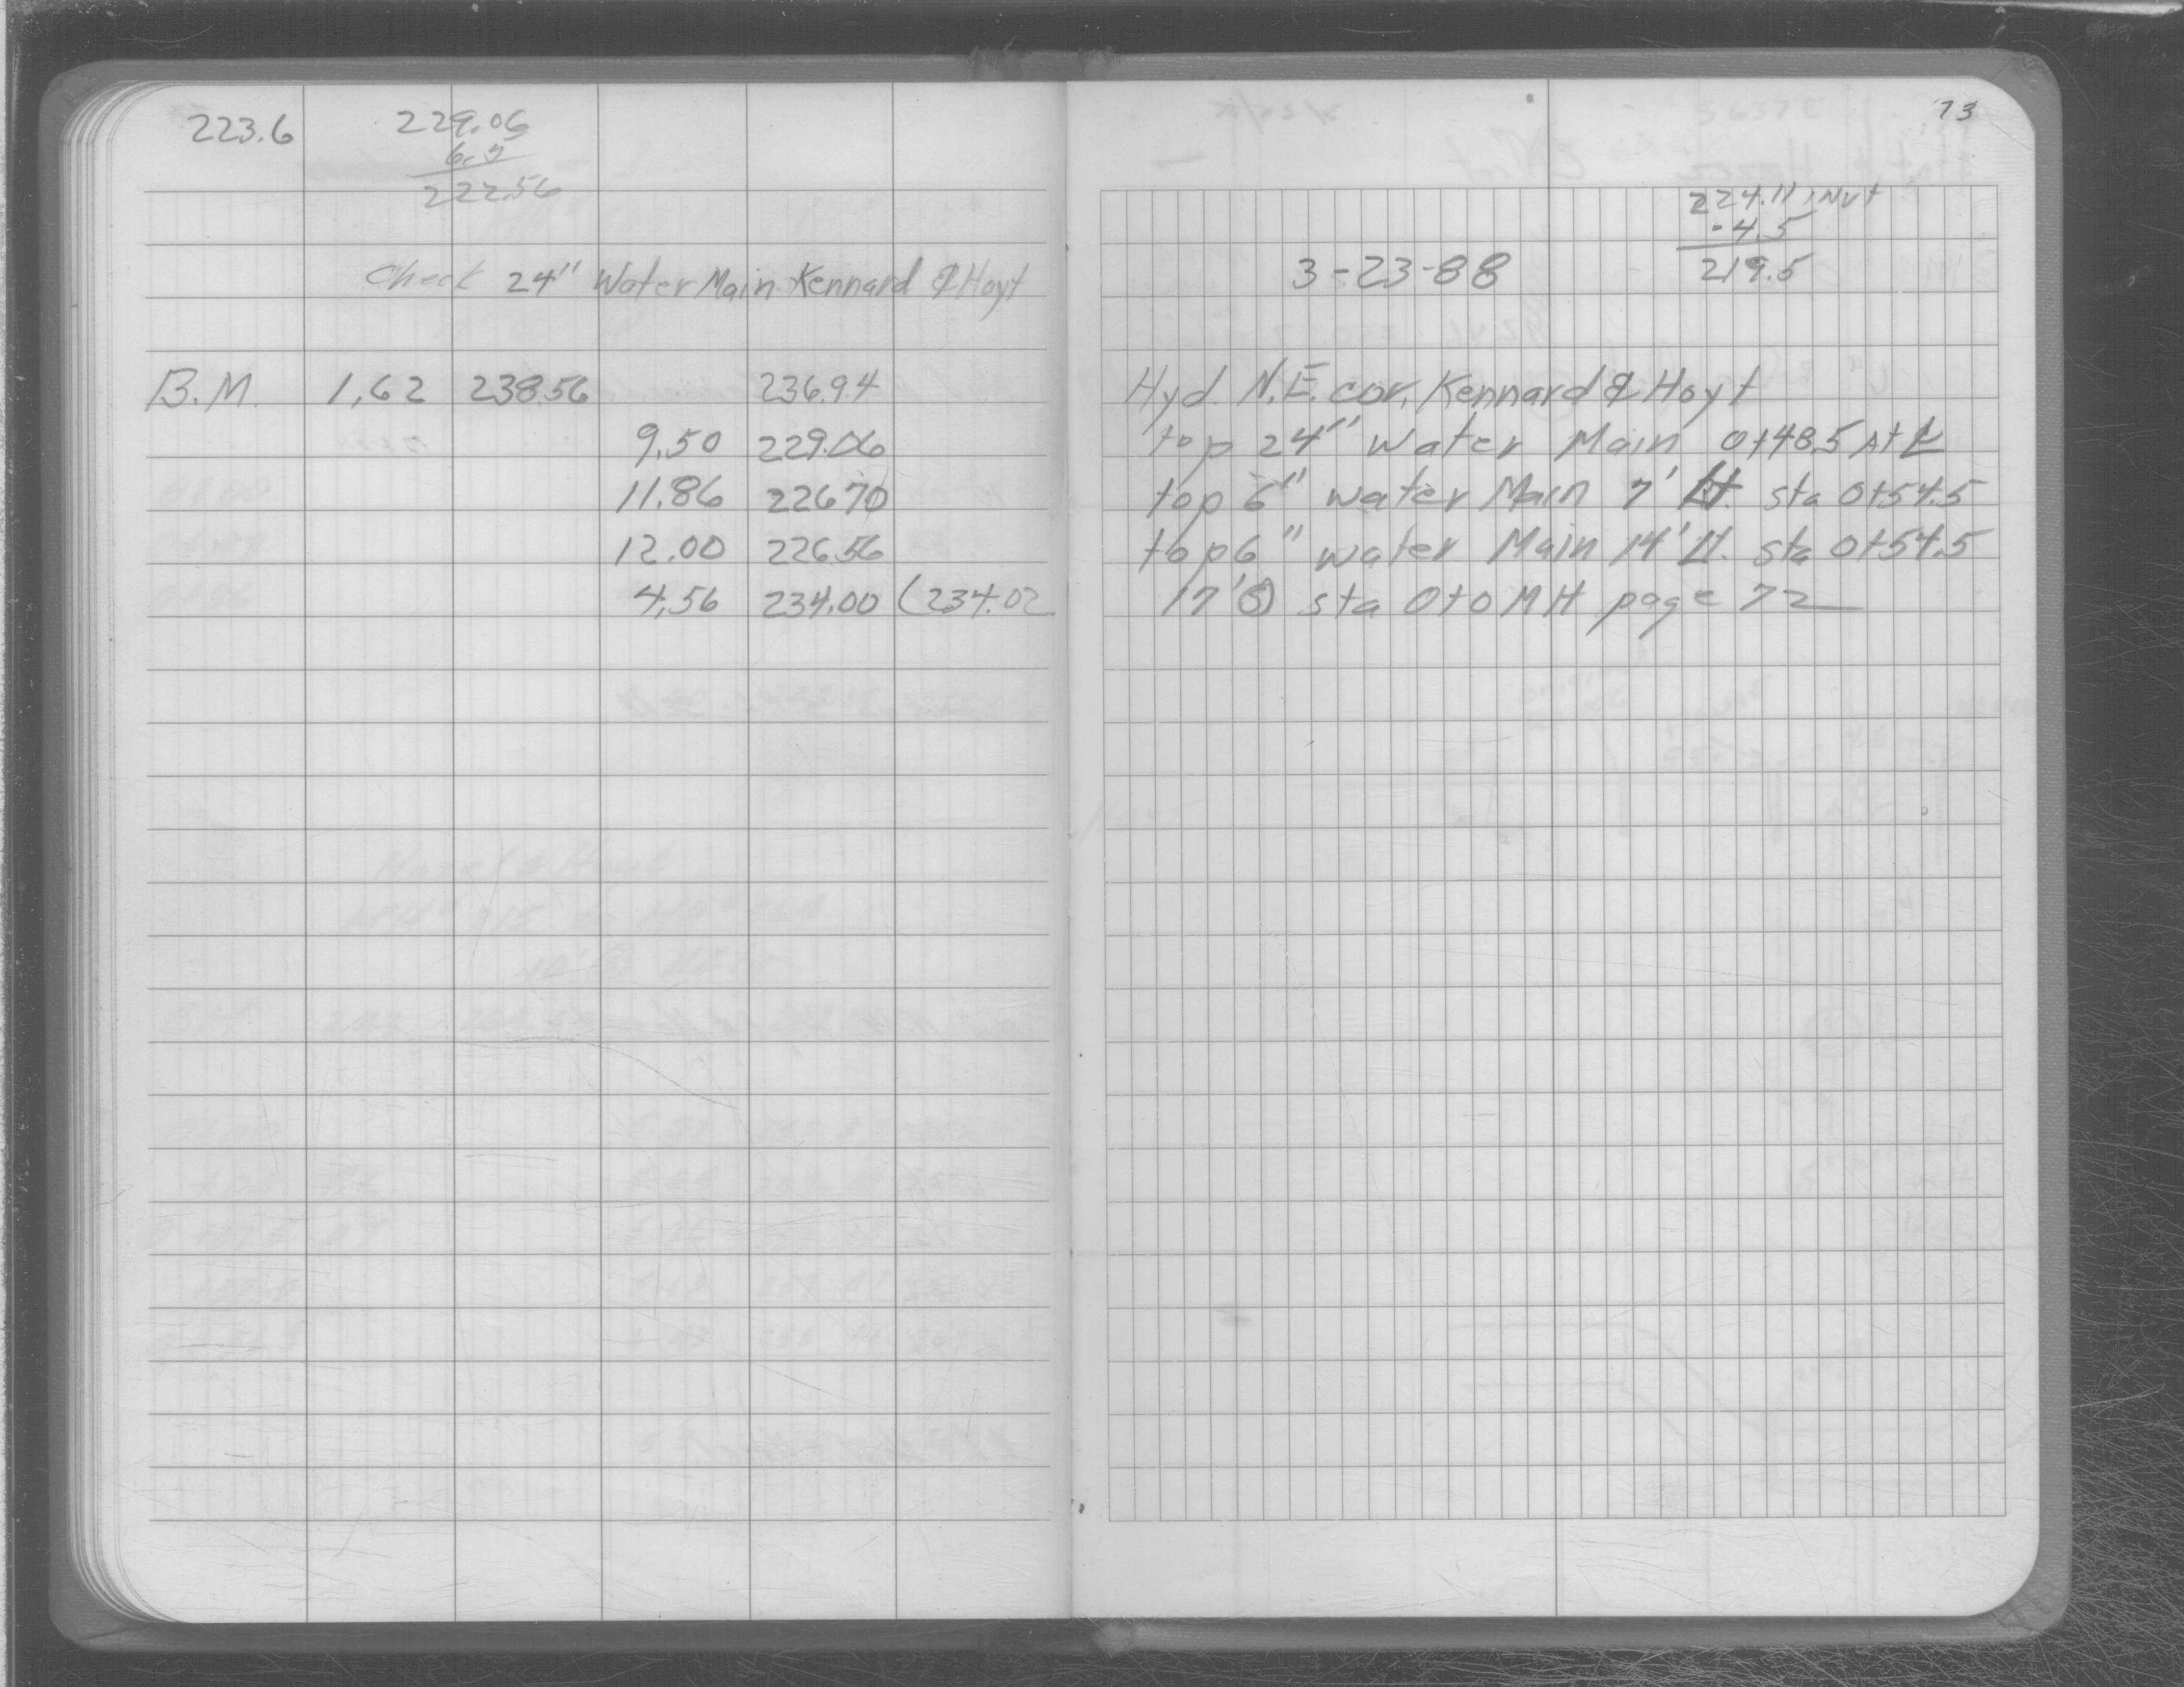 223.6
229.06
222.56
Check 24" Water Main Kennard & Hoyt
B.M. 1.62 238.56 236.94
9.50 229.06
11.86 226.70
12.00 226.56
4.56 234.00 (234.02
73
224.11 invt
-4.5
219.5
3-23-88
Hyd. N.E. cor. Kennard & Hoyt
top 24" water Main 0+48.5 At ℄
top 6" water Main 7' Lt. sta 0+54.5
top 6" water Main 14' Lt. sta 0+54.5
17' Ⓢ sta 0+0 MH page 72